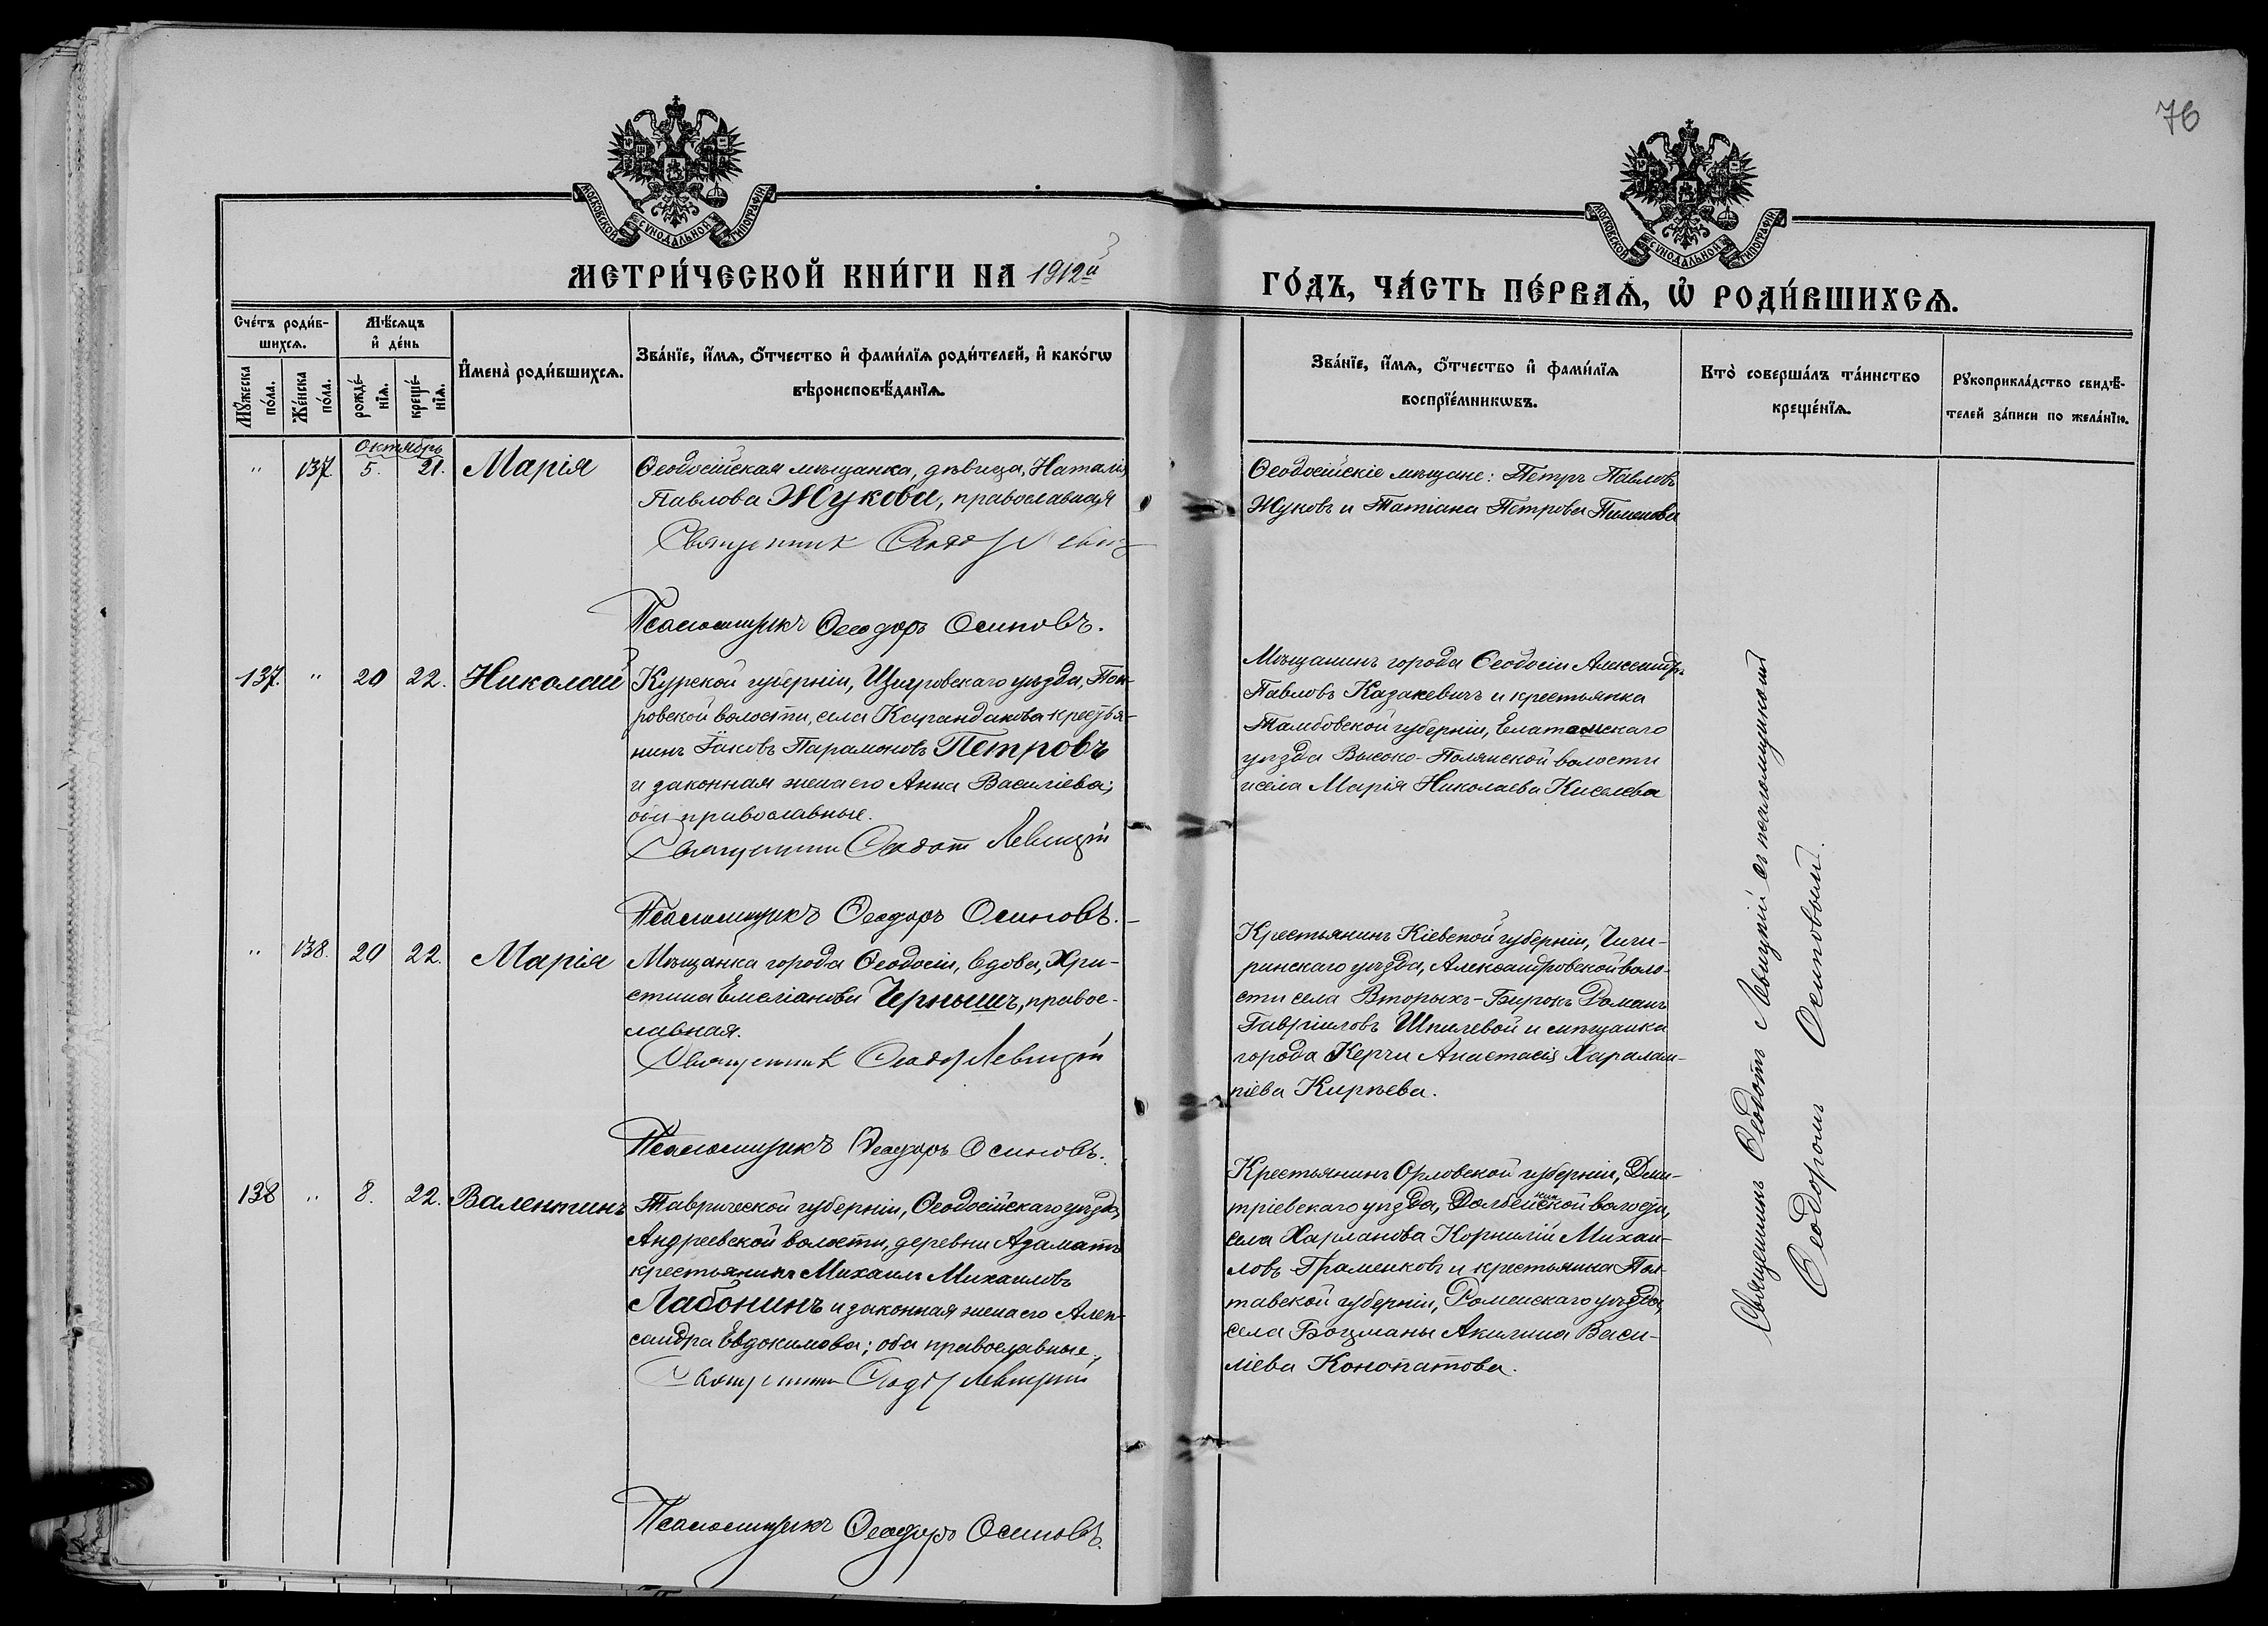 76
МОСКОВСКОЙ СѴНОДАЛЬНОЙ ТИПОГРАФІИ
МОСКОВСКОЙ СѴНОДАЛЬНОЙ ТИПОГРАФІИ
МЕТРИ́ЧЕСКОЙ КНИ́ГИ НА 1912й
ГО́ДЪ, ЧА́СТЬ ПЕ́РВАѦ, Ѡ҆ РОДИ́ВШИХСѦ.
Сче́тъ роди́в-
шихсѧ.
Мѣ́сѧцъ
и҆ де́нь
Мꙋ́жеска
по́ла.
Же́нска
по́ла.
рожде́-
нїѧ.
креще́-
нїѧ.
И҆мена̀ роди́вшихсѧ.
Зва́нїе, и҆́мѧ, ѻ҆́тчество и҆ фами́лїѧ роди́телей, и҆ како́гѡ
вѣроисповѣ́данїѧ.
Зва́нїе, и҆́мѧ, ѻ҆́тчество и҆ фами́лїѧ
воспрїе́мникѡвъ.
Кто̀ соверша́лъ та́инство
креще́нїѧ.
Рꙋкоприкла́дство свидѣ́-
телей за́писи по жела́нїю.
Октябрь
" 137. 5. 21. Марія
Ѳеодосійская мѣщанка, дѣвица, Наталія
Павлова Жукова, православная
Священник
Псаломщикъ Ѳеодоръ Осиповъ.
Ѳеодосійскіе мѣщане: Петръ Павловъ
Жуковъ и Татіана Петрова Пименова
137. " 20 22. Николай
Курской губерніи, Щигровскаго уѣзда,
ровской волости, села Карандакова крестья-
нинъ Іаковъ Парамоновъ Петровъ
и законная жена его Анна Василіева;
оба православные.
Священник Ѳеодот Левицкій
Псаломщикъ Ѳеодоръ Осиповъ.
Мѣщанинъ города Ѳеодосіи Александръ
Павловъ Казакевичъ и крестьянка
Тамбовской губерніи, Елатомскаго
уѣзда Высоко-Полянской волости
и села Марія Николаева Киселева
" 138. 20 22. Марія
Мѣщанка города Ѳеодосіи, вдова, Хри-
стина Емеліанова Чернышъ, право-
славная.
Священник Ѳеодот Левицкій
Псаломщикъ Ѳеодоръ Осиповъ.
Крестьянинъ Кіевской губерніи, Чиги-
ринскаго уѣзда, Александровской воло-
сти села Вторыхъ- Романъ
Гавріиловъ Шпилевой и мѣщанка
города Керчи Анастасія Харалам-
піева Кирѣева.
138 " 8. 22. Валентинъ
Таврической губерніи, Ѳеодосійскаго уѣзда,
Андреевской волости, деревни Адаматъ
крестьянинъ Михаилъ Михаиловъ
Лабонинъ и законная жена его Алек-
сандра Евдокимова; оба православные.
Священник Ѳеодот Левицкій
Псаломщикъ Ѳеодоръ Осиповъ.
Крестьянинъ Орловской губерніи, Дми-
тріевскаго уѣзда, волости,
села Харланова Корнилій Михаи-
ловъ Граменковъ и крестьянка Пол-
тавской губерніи, Роменскаго уѣзда,
села Боцманы Акилина Васи-
ліева Конопатова.
Священникъ Ѳеодотъ Левицкій съ псаломщикомъ
Ѳеодоромъ Осиповымъ.